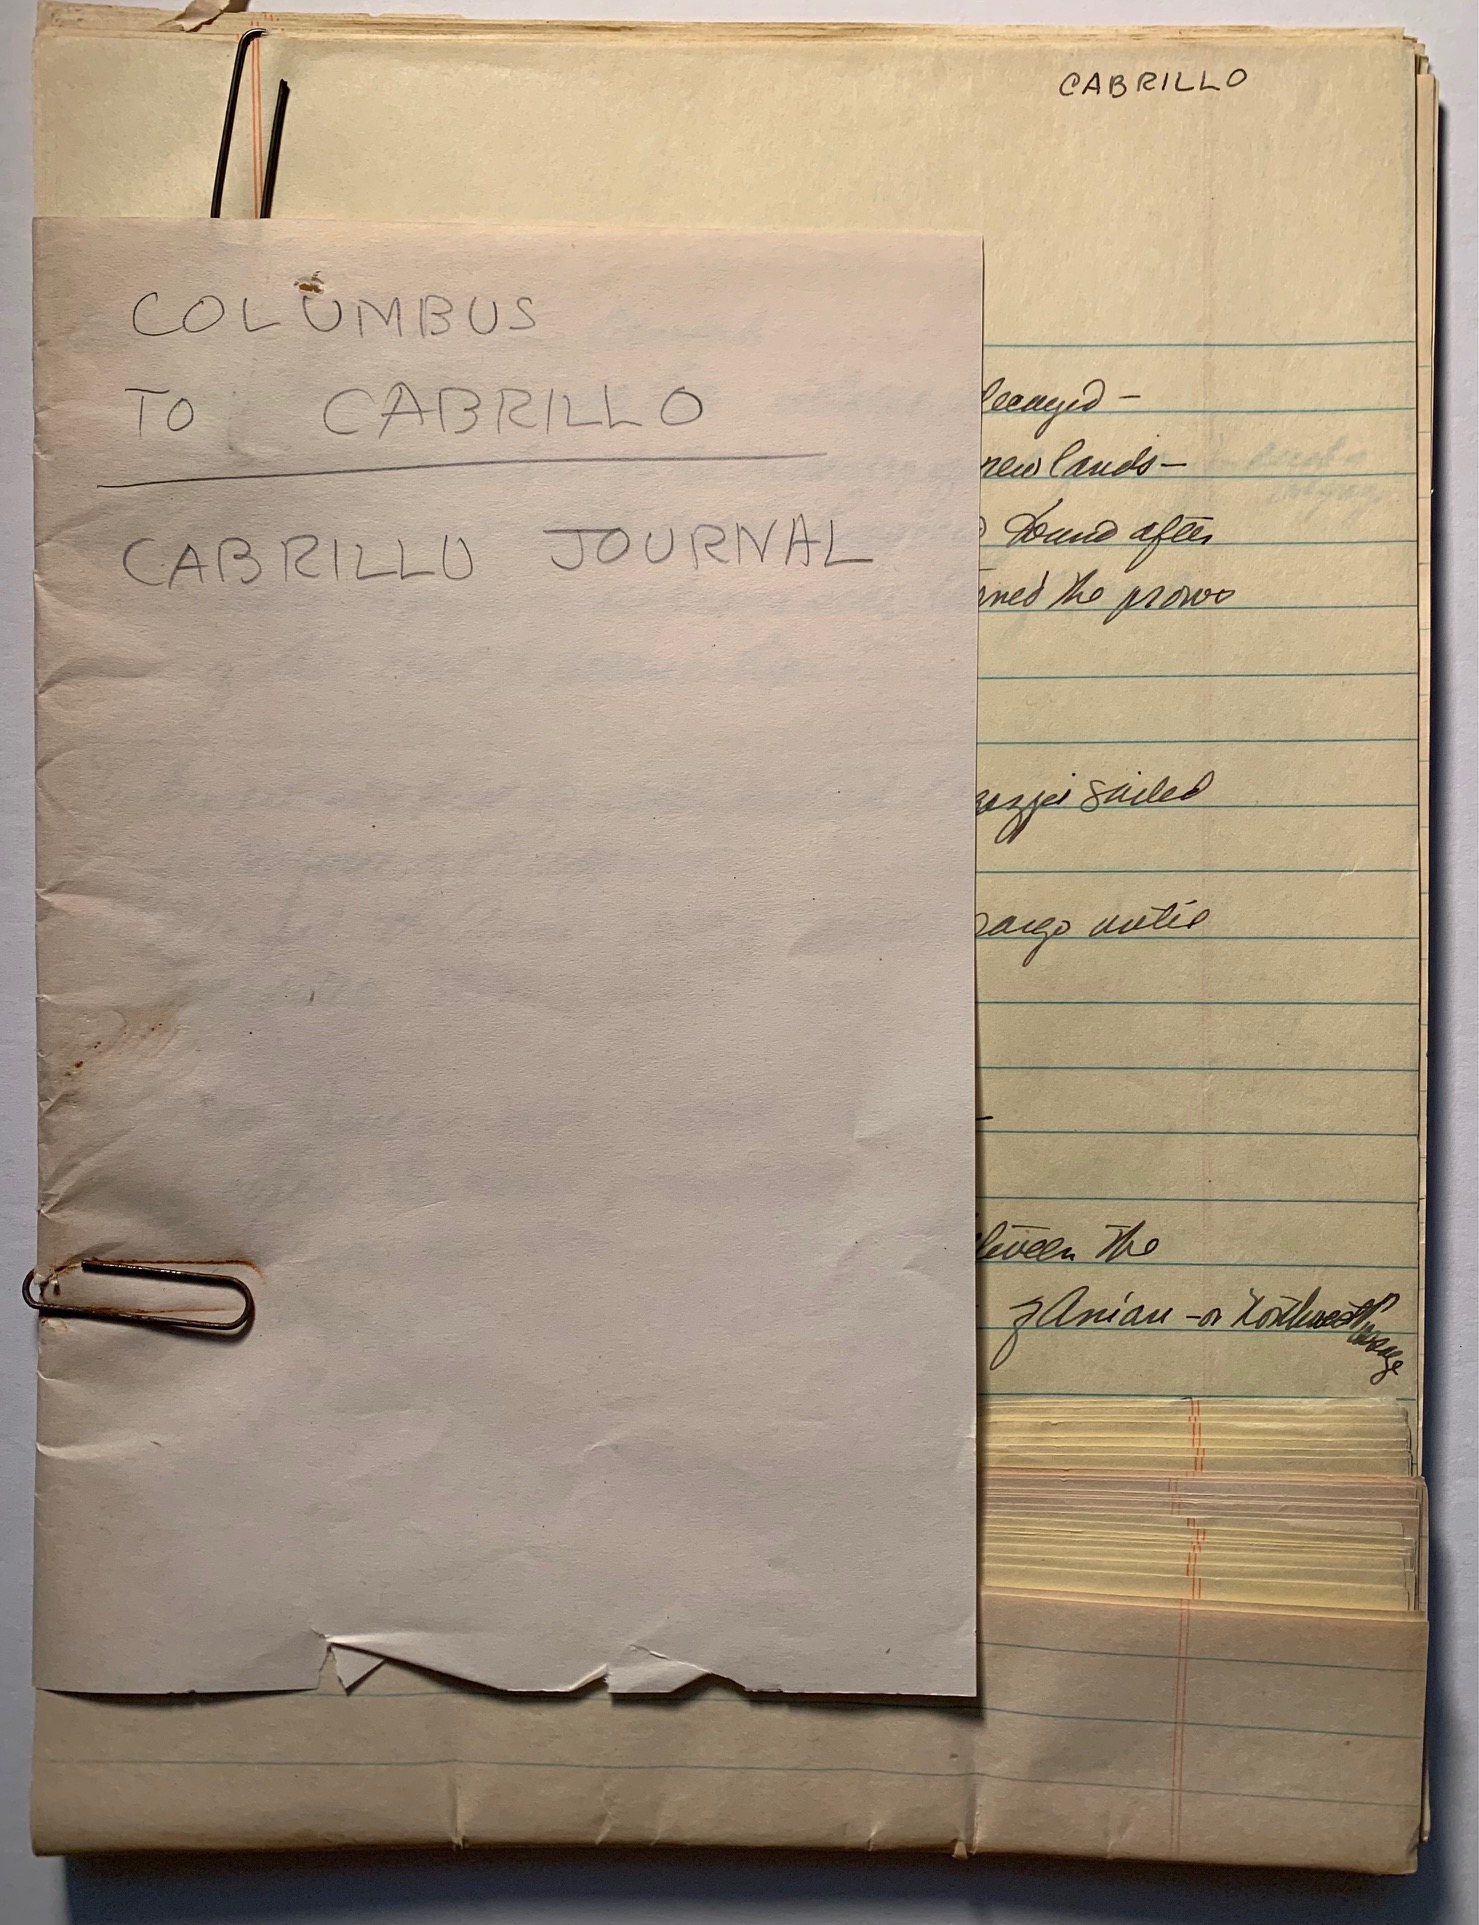 CABRILLO
COLUMBUS
TO CABRILLO
CABRILLO JOURNAL
decayed –
new lands –
found after
the prows
sailed
until
the
of Anian – or Northwest Passage